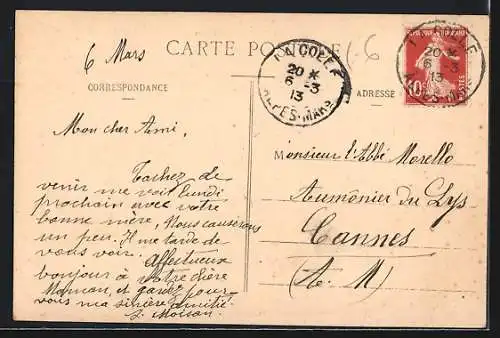 6 Mars
CARTE POSTALE
6
LA COLLE
20 *
6 -3
13
ALPES-MARmes
20 *
6 -3
13
ALPES-MAR
10
POSTES
CORRESPONDANCE
ADRESSE
Mon cher Ami,
Tachez de
venir me voir lundi
prochain avec votre
bonne mère, Nous causerons
un peu. Il me tarde de
vous voir. Affectueux
bonjour à votre chère
Maman, et gardez pour
vous ma sincère amitié
Monsieur l'Abbé Morello
Aumônier du Lys
Cannes
(A. M)